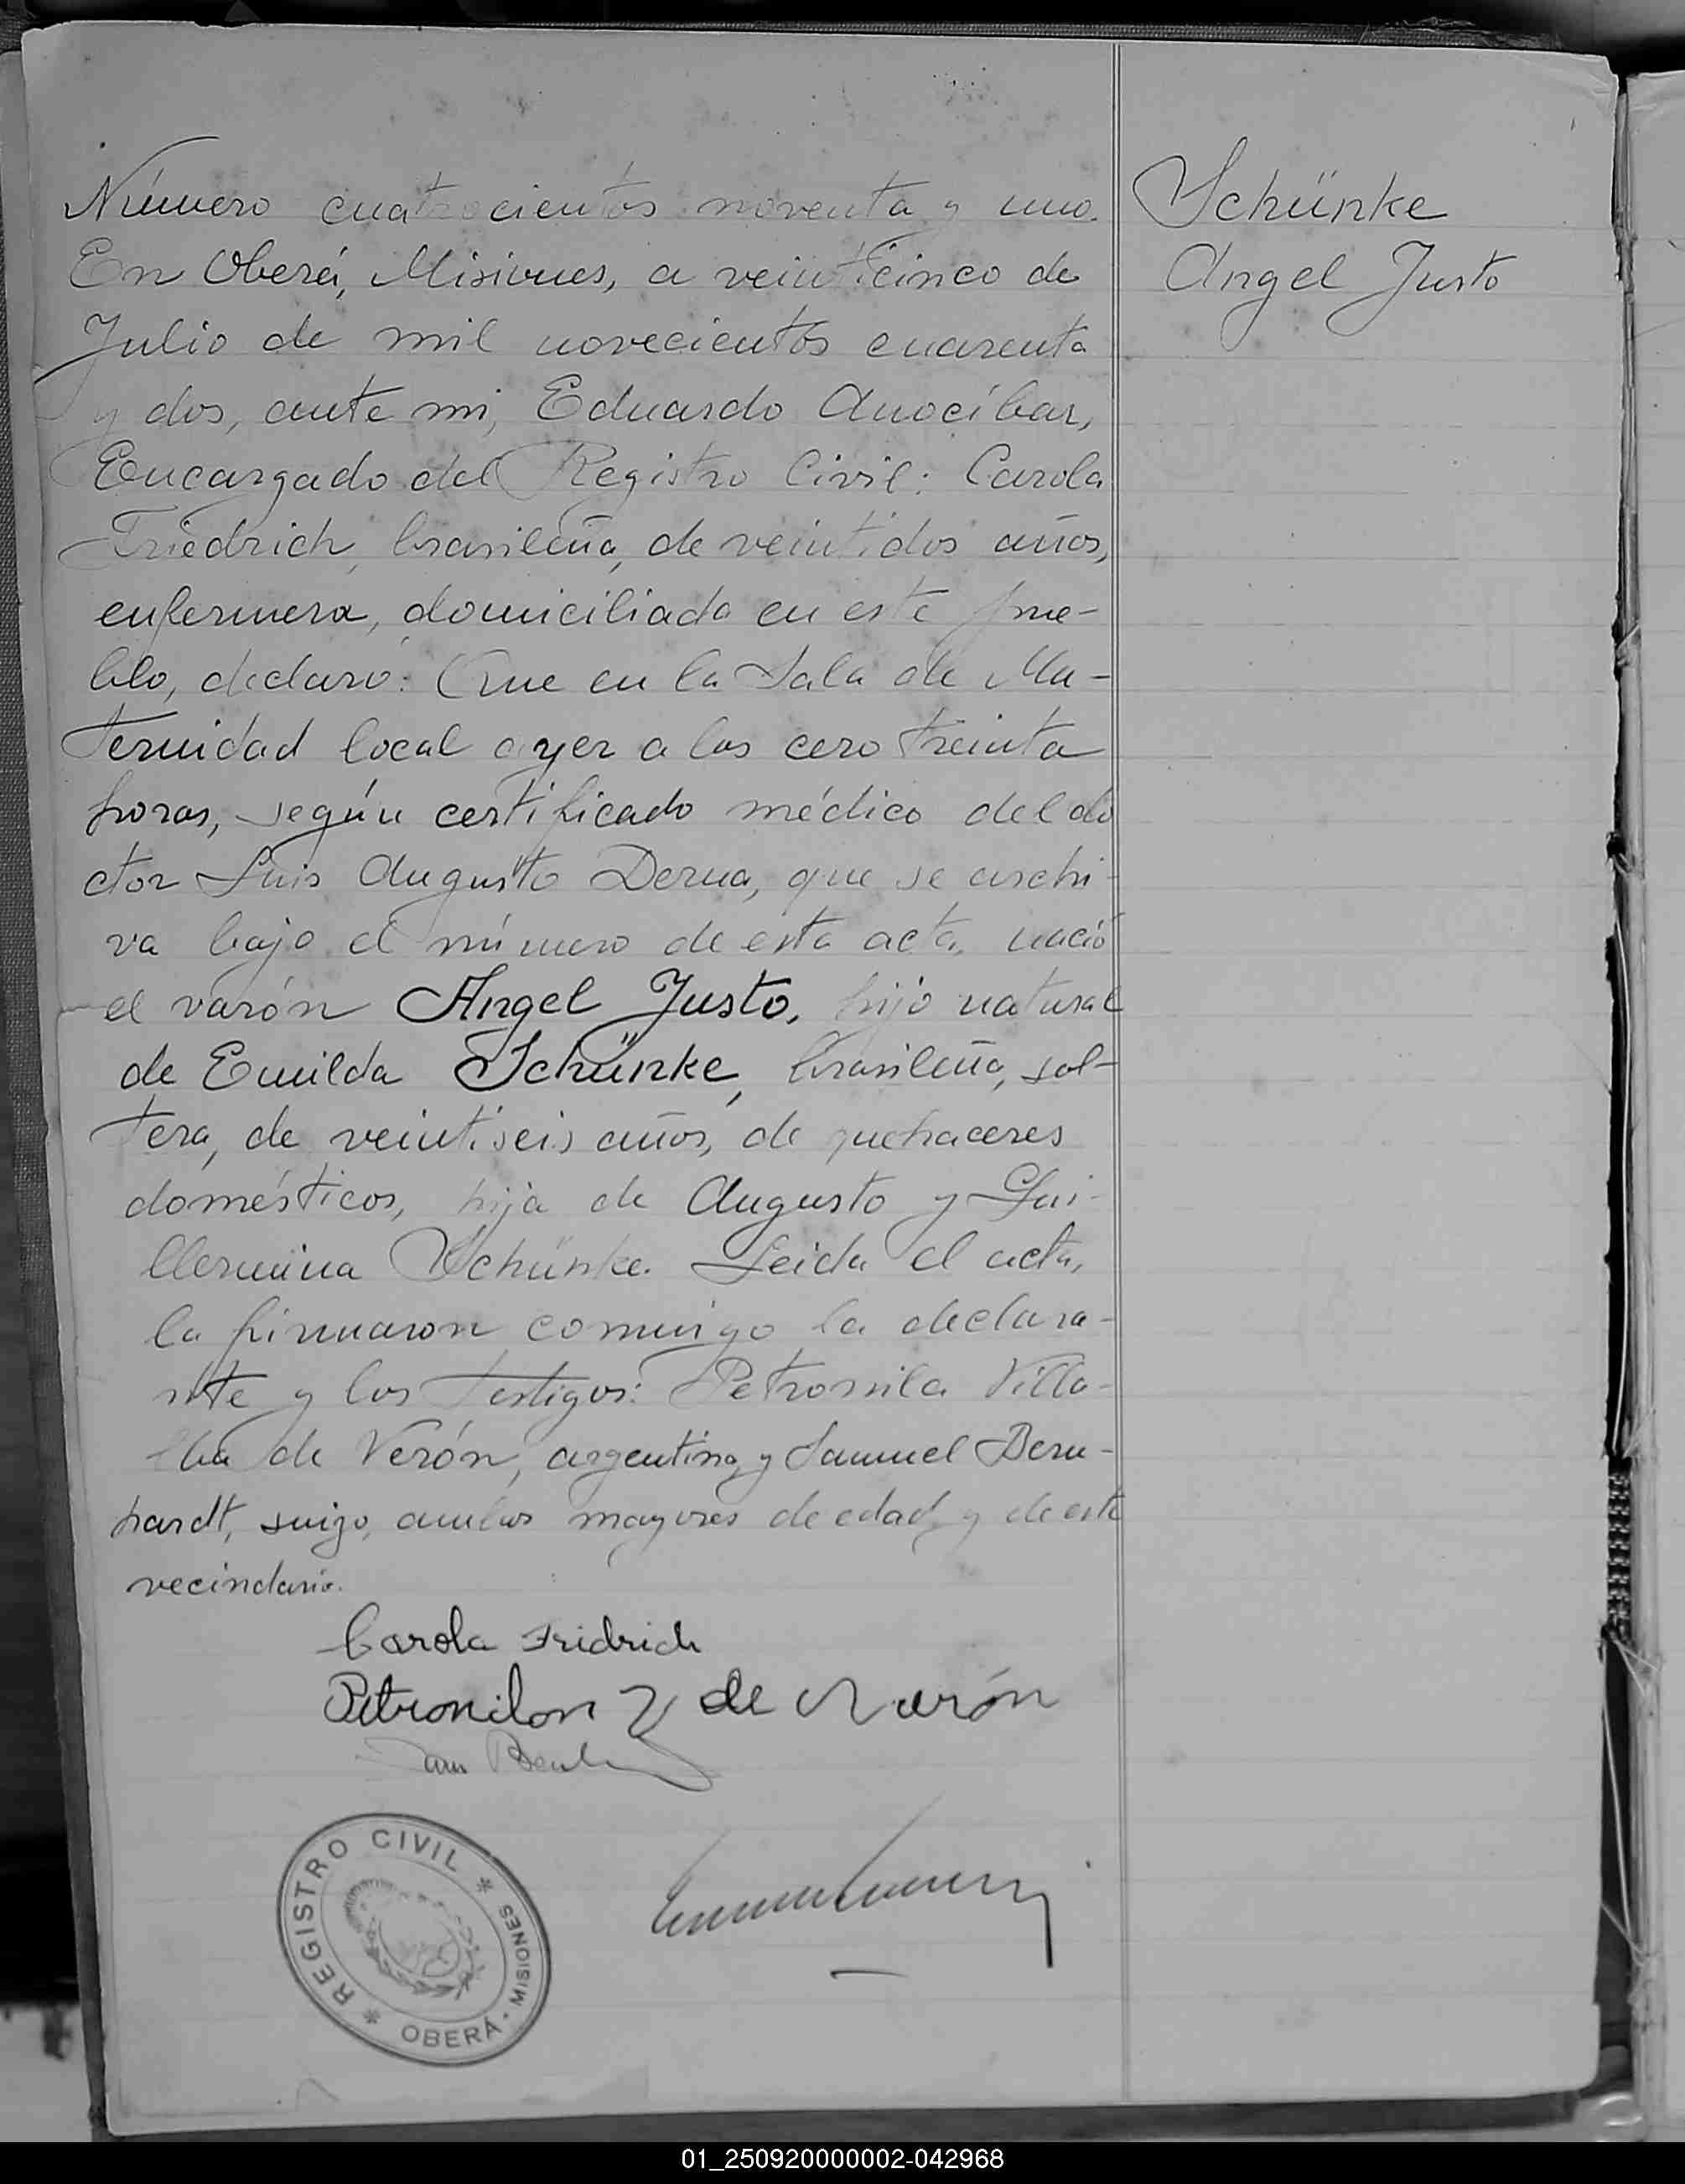 Número cuatrocientos noventa y uno.
En Oberá, Misiones, a veinticinco de
Julio de mil novecientos cuarenta
y dos, ante mi, Eduardo Anocíbar,
Encargado del Registro Civil: Carola
Friedrich, brasileña, de veintidos años,
enfermera, domiciliada en este pue-
blo, declaró: Que en la Sala de Ma-
ternidad local ayer a las cero treinta
horas, según certificado médico del do
ctor Luis Augusto Derna, que se archi-
va bajo el número de esta acta, nació
el varón Angel Justo, hijo natural
de Emilda Schünke, brasileña, sol-
tera, de veintiseis años, de quehaceres
domésticos, hija de Augusto y Gui-
llermina Schünke. Leida el acta,
la firmaron conmigo la declara-
nte y los testigos: Petronila Villa-
lba de Verón, argentina, y Samuel Bern-
hardt, suizo, ambos mayores de edad y de este
vecindario.
Schünke
Angel Justo
Carola Fridrich
Petronilon V de Verón
REGISTRO CIVIL * MISIONES
* OBERÁ ·
01_250920000002-042968